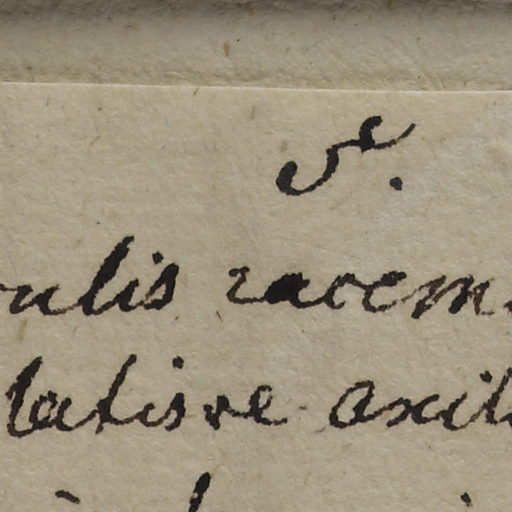 ulis racem
latisve axil